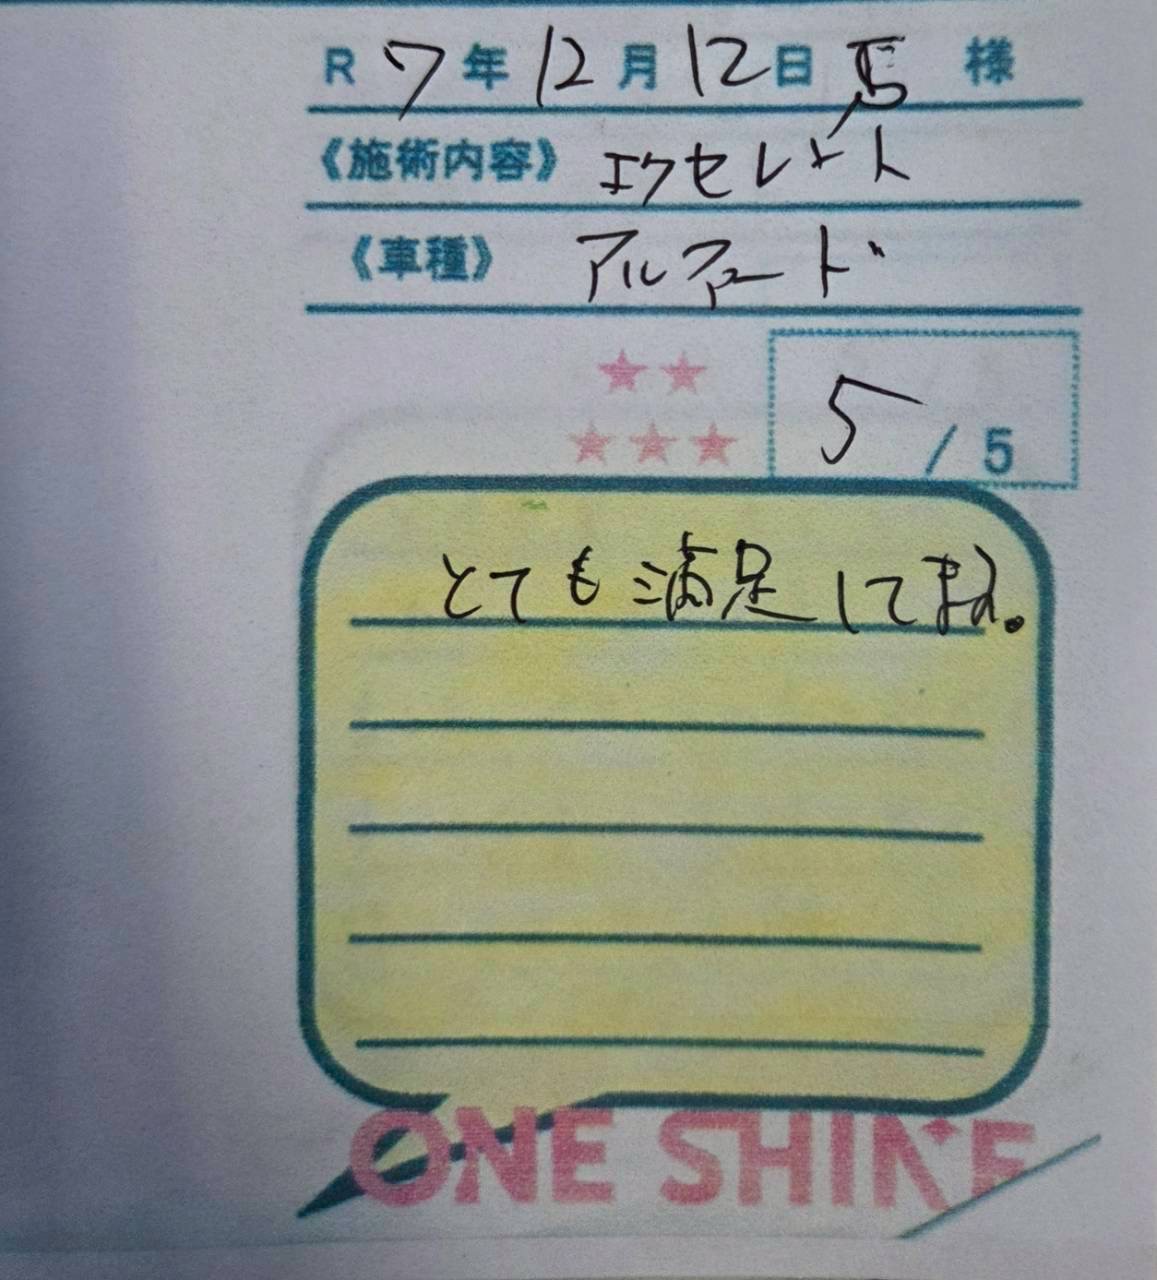 R 7年 12月 12日 様
《施術内容》 エクセレント
《車種》 アルファード
5 / 5
とても満足してます。
ONE SHINE